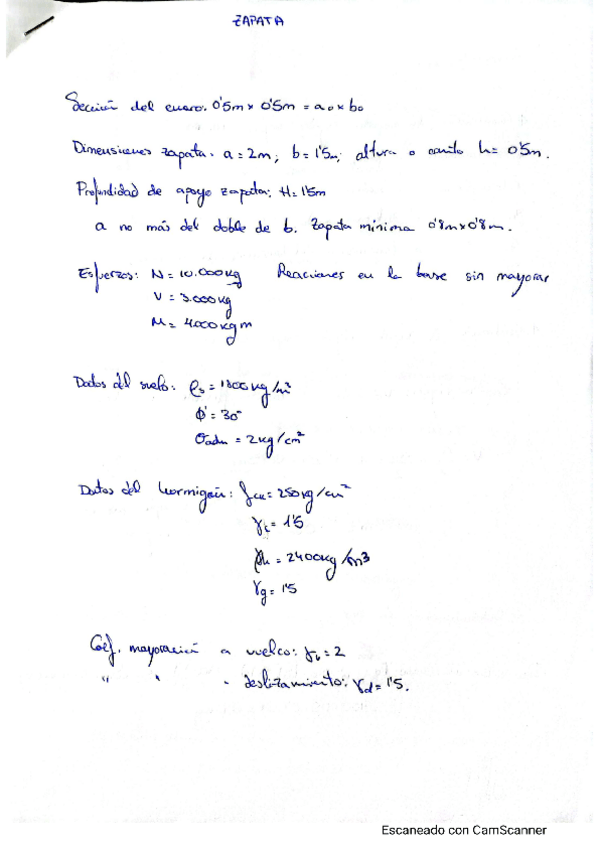 ZAPATA
Sección del enano. 0'5m x 0'5m = a₀ x b₀
Dimensiones zapata. a = 2m; b = 1'5m; altura o canto h = 0'5m.
Profundidad de apoyo zapata; H = 1'5m
a no más del doble de b. Zapata mínima 0'8m x 0'8m.
Esfuerzos: N = 10.000kg Reacciones en la base sin mayorar
V = 3.000kg
M = 4000kgm
Datos del suelo: ρs = 1800kg/m³
ϕ' = 30°
σadm = 2kg/cm²
Datos del hormigón: fck = 250kg/cm²
γc = 1'5
ρh = 2400kg/m3
γg = 1'5
Coef. mayoración a vuelco: γv = 2
" " " deslizamiento: γd = 1'5.
Escaneado con CamScanner